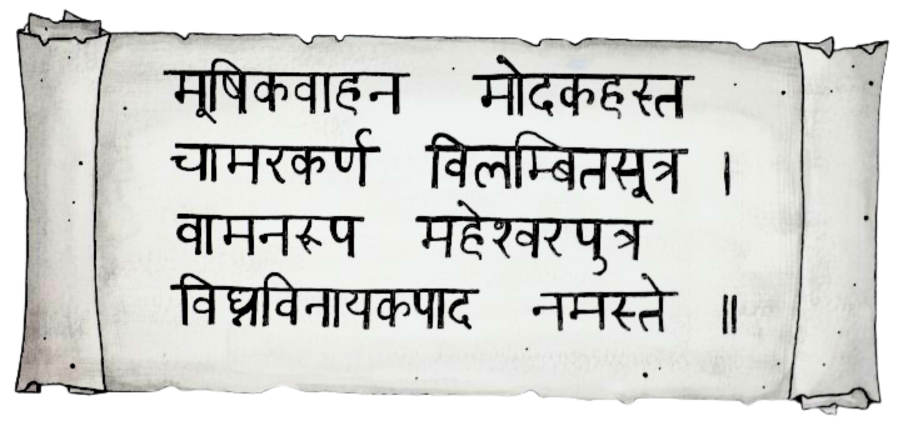 मूषिकवाहन मोदकहस्त
चामरकर्ण विलम्बितसूत्र ।
वामनरूप महेश्वरपुत्र
विघ्नविनायकपाद नमस्ते ॥